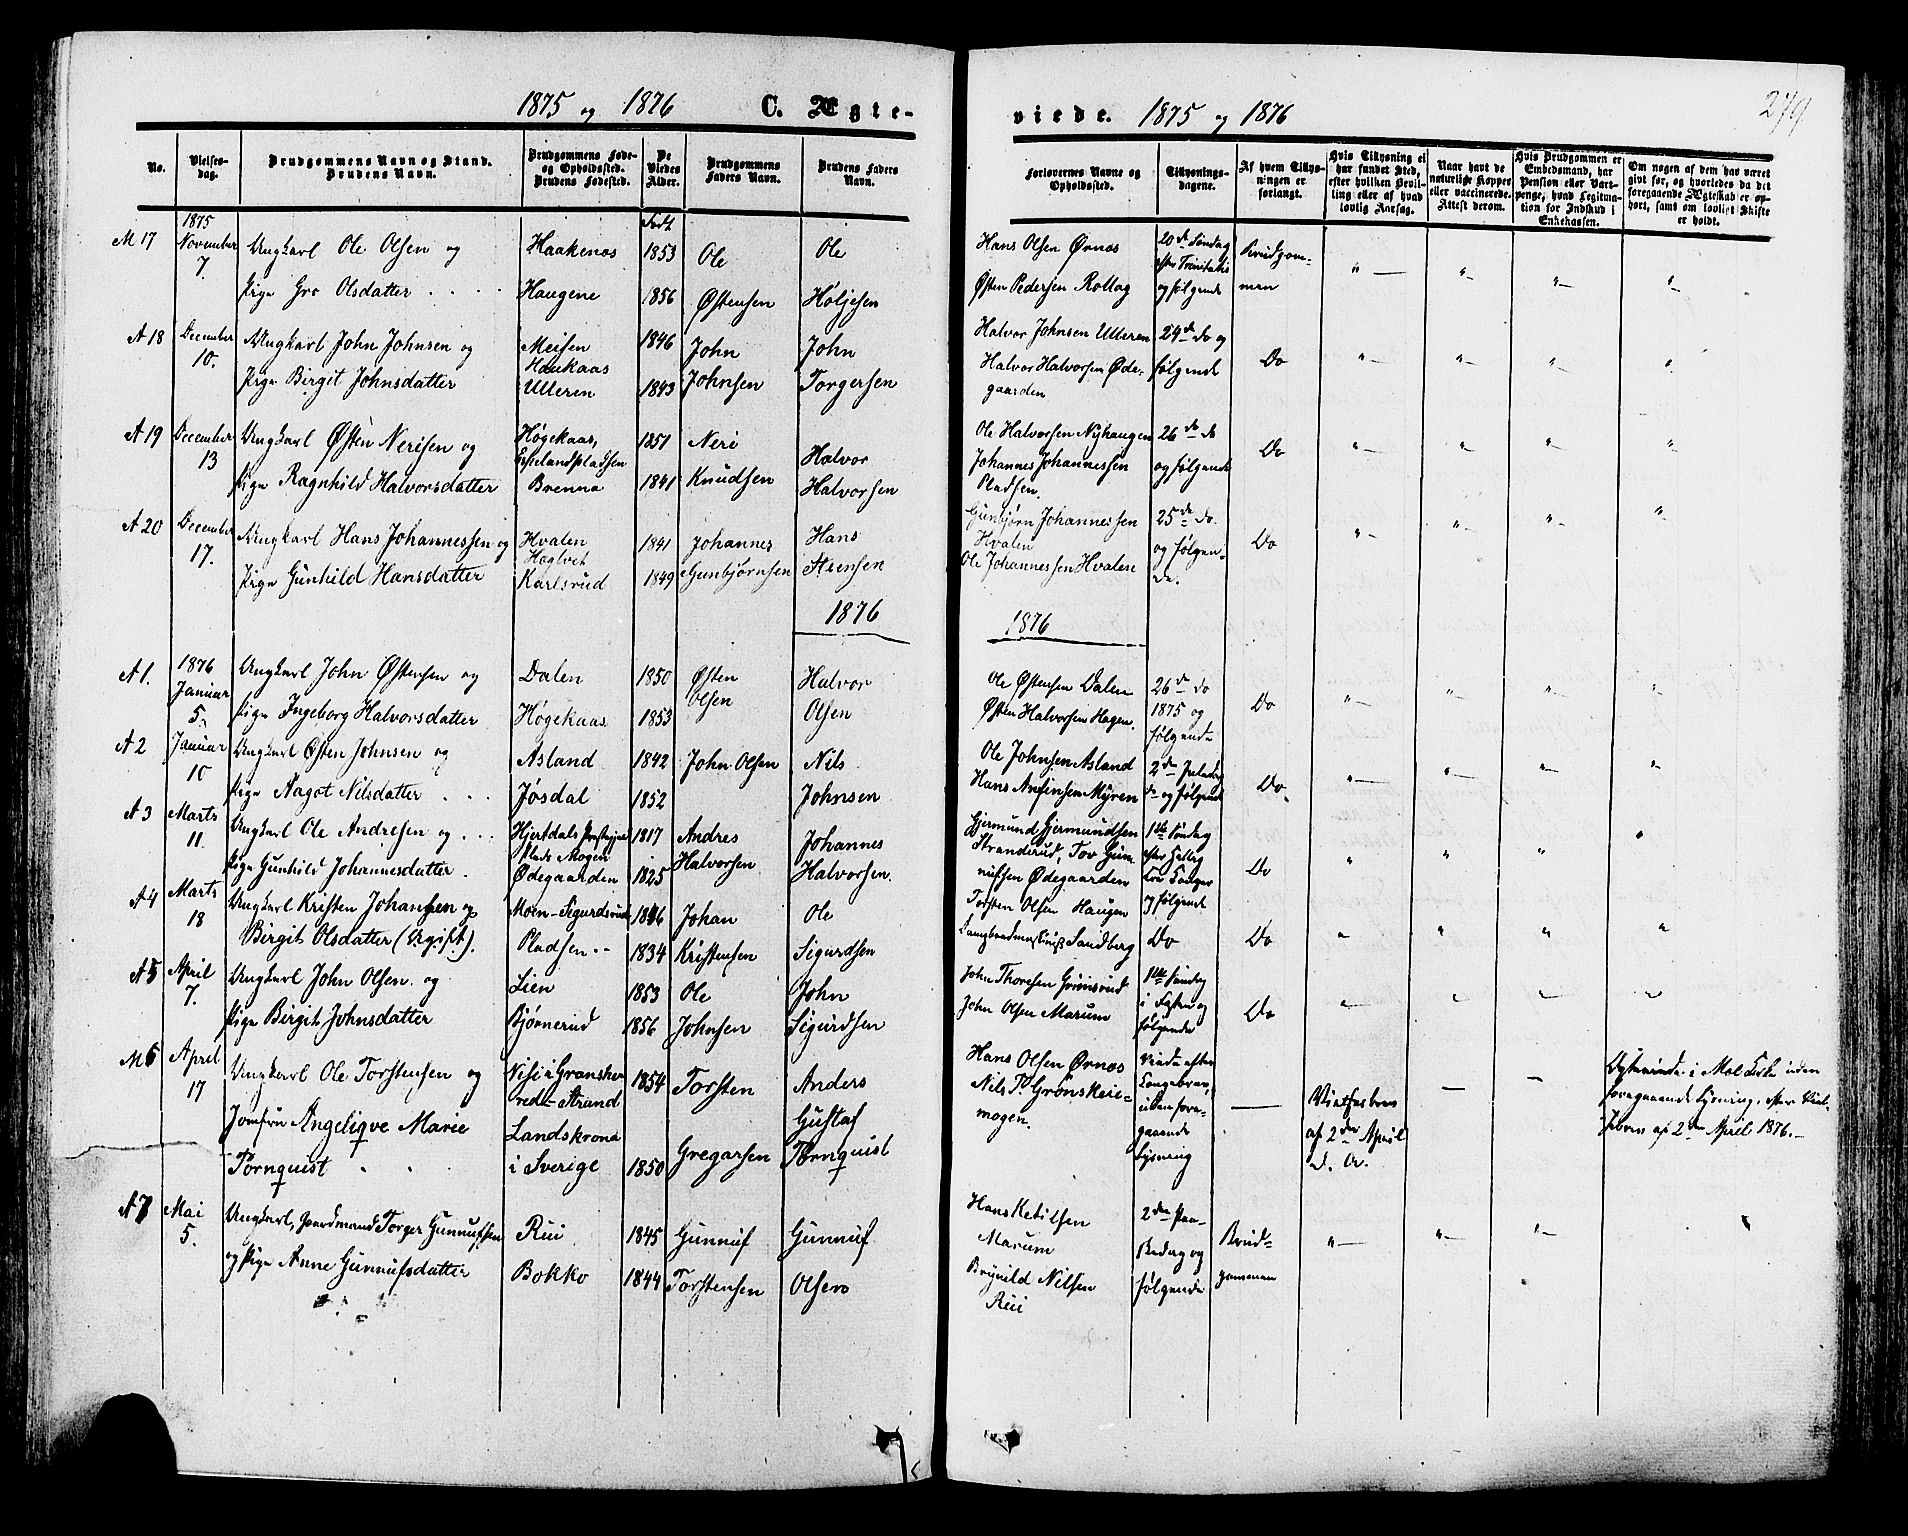 1875 og 1876 C. Ægte-
viede. 1875 og 1876
279
No.
Vielses-
dag.
Brudgommens Navn og Stand.
Brudens Navn.
Brudgommens Føde-
og Opholdssted.
Brudens Fødested.
De
Viedes
Alder.
Brudgommens
Faders Navn.
Brudens Faders
Navn.
Forlovernes Navne og
Opholdssted.
Tillysnings-
dagene.
Af hvem Tillys-
ningen er
forlangt.
Hvis Tillysning ei
har fundet Sted,
efter hvilken Bevil-
ling eller af hvad
lovlig Aarsag.
Naar havt de
naturlige Kopper
eller vaccinerede.
Attest derom.
Hvis Brudgommen er
Embedsmand, har
Pension eller Vart-
penge, hvad Legitima-
tion for Indskud i
Enkekassen.
Om nogen af dem har været
gift før, og hvorledes da det
foregaaende Ægteskab er op-
hørt, samt om lovligt Skifte
er holdt.
M 17
1875
November
7.
Ungkarl Ole Olsen og
Pige Gro Olsdatter
Haakenæs
Haugene
Født
1853
1856
Ole
Østensen
Ole
Holjesen
Hans Olsen Ørnæs
Østen Pedersen Rollag
20de Søndag
efter Trinitatis
og følgende
Brudgom-
men
A 18
December
10.
Ungkarl John Johnsen og
Pige Birgit Johnsdatter
Meisen
Haukaas
Ulleren
1846
1843
John
Johnsen
John
Torgersen
Halvor Johnsen Ulleren
Halvor Halvorsen Øde-
gaarden
24de do og
følgende
Do
A 19
December
13
Ungkarl Østen Nerisen og
Pige Ragnhild Halvorsdatter
Høgekaas,
Espelandpladsen
Brenna
1851
1841
Neri
Knudsen
Halvor
Halvorsen
Ole Halvorsen Nyhaugen
Johannes Johannessen
Pladsen.
26de do
og følgende
Do
A 20
December
17.
Ungkarl Hans Johannessen og
Pige Gunhild Hansdatter
Hvalen
Hogtvet
Karlsrud
1841
1849
Johannes
Gunbjørnsen
Hans
Steensen
Gunbjørn Johannessen
Hvalen
Ole Johannessen Hvalen
25de do.
og følgen-
de.
Do
1876
1876
A 1.
1876
Januar
5.
Ungkarl John Østensen og
Pige Ingeborg Halvorsdatter
Dalen
Høgekaas
1850
1853
Østen
Olsen
Halvor
Olsen
Ole Østensen Dalen
Østen Halvorsen Hagen.
26de do
1875 og
følgende
Do
A 2
Januar
10
Ungkarl Østen Johnsen og
Pige Aagot Nilsdatter
Asland
Jøsdal
1842
1852
John Olsen
Nils
Johnsen
Ole Johnsen Asland
Hans Anfinsen Myren
2den Juledag
do og følgende
Do.
A 3
Marts
11.
Ungkarl Ole Andresen og
Pige Gunhild Johannesdatter
Hjertdals Præstegjeld
Plads Mogen
Ødegaarden
1817
1825
Andres
Halvorsen
Johannes
Halvorsen.
Gjermund Gjermundsen
Stranderud, Tov Gun-
nufsen Ødegaarden
1ste Søndag
efter Hellig
tre Konger
og følgende
Do
A 4
Marts
18
Ungkarl Kristen Johansen og
Birgit Olsdatter (Ugift).
Moen-Sigurdsrud
Pladsen
1846
1834
Johan
Kristensen
Ole
Sigurdsen
Torsten Olsen Haugen
Sandberg
Do
Do
A 5
April
7.
Ungkarl John Olsen og
Pige Birgit Johnsdatter
Lien
Bjørnerud
1853
1856
Ole
Johnsen
John
Sigurdsen
John Thoresen Grimsrud
John Olsen Marum
1ste Søndag
i Faste og
følgende
Do
M 6
April
17
Ungkarl Ole Torstensen og
Jomfru Angeliqve Marie
Tornquist
Nisi i Gransher-
red-Strand
Landskrona
i Sverige
1854
1850
Torsten
Gregarsen
Anders
Gustaf
Tornquist
Hans Olsen Ørnæs
Nils T. Grønskeie-
mogen.
Viede efter
Kongebrev,
uden fore-
gaaende
Lysning
Vielsesbrev
af 2den April
d. A.
Ægteviede i Mæl Kirke uden
foregaaende Lysning, efter Viel-
sesbrev af 2den April 1876.
A 7
Mai
5.
Ungkarl, Gaardmand Torger Gunnufsen
og Pige Anne Gunnufsdatter
Rui
Bokko
1845
1844
Gunnuf
Torstensen
Gunnuf
Olsen
Hans Ketilsen
Marum
Brynild Nilsen
Rui
2den Paa-
skedag og
følgende
Brud-
gommen